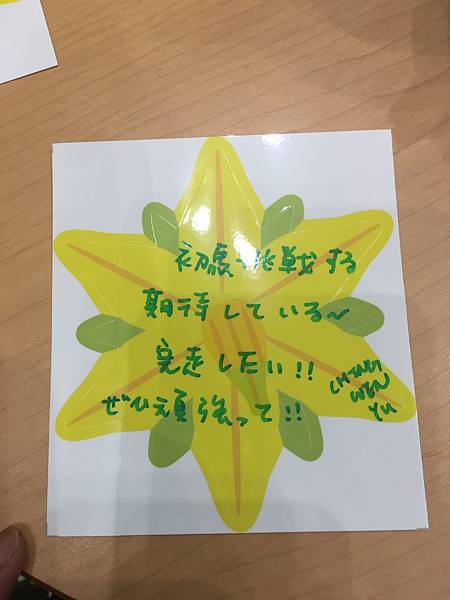 初馬挑戦する
期待している~
完走したい!!
ぜひ頑張って!!
CHING
WEN
YU